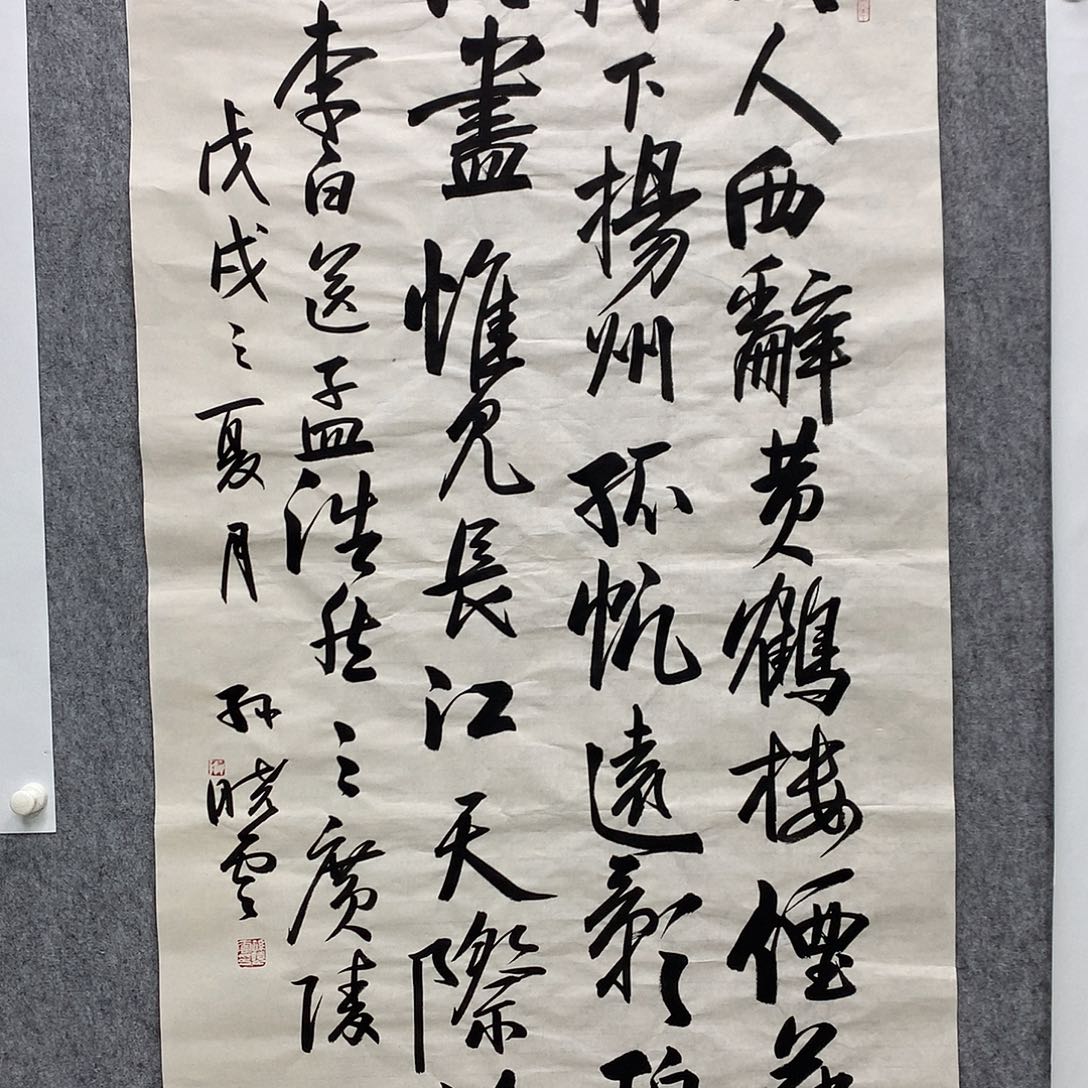 人西辭黄鶴樓煙
下揚州孤帆遠影
盡惟見長江天際
李白送孟浩然之廣陵
戊戌之夏月 孫曉雲